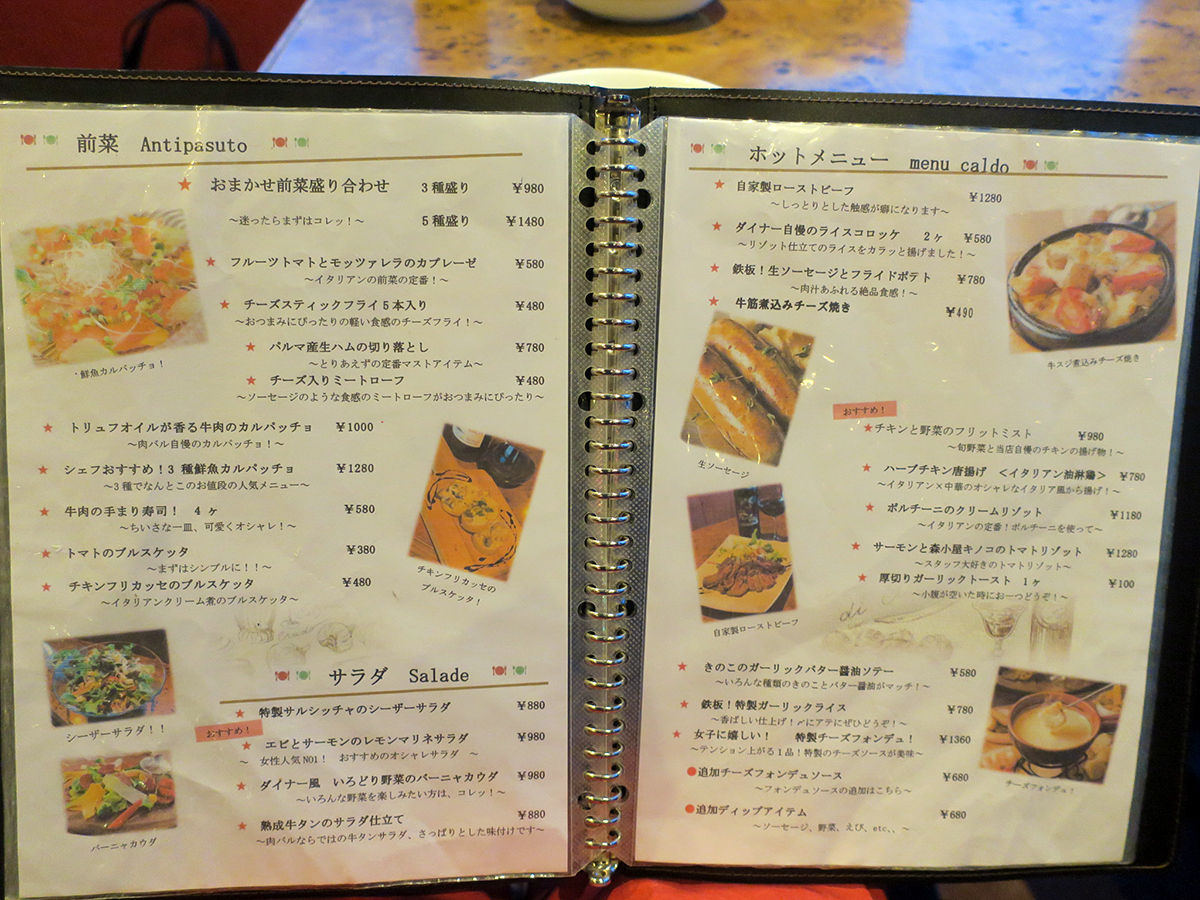 前菜 Antipasuto
おまかせ前菜盛り合わせ 3種盛り ¥980
～迷ったらまずはコレッ！～ 5種盛り ¥1480
フルーツトマトとモッツァレラのカプレーゼ ¥580
～イタリアンの前菜の定番！～
チーズスティックフライ5本入り ¥480
～おつまみにぴったりの軽い食感のチーズフライ！～
パルマ産生ハムの切り落とし ¥780
～とりあえずの定番マストアイテム～
チーズ入りミートローフ ¥480
～ソーセージのような食感のミートローフがおつまみにぴったり～
鮮魚カルパッチョ！
トリュフオイルが香る牛肉のカルパッチョ ¥1000
～肉バル自慢のカルパッチョ！～
シェフおすすめ！3種鮮魚カルパッチョ ¥1280
～3種でなんとこのお値段の人気メニュー～
牛肉の手まり寿司！ 4ヶ ¥580
～ちいさな一皿、可愛くオシャレ！～
トマトのブルスケッタ ¥380
～まずはシンプルに！！～
チキンフリカッセのブルスケッタ ¥480
～イタリアンクリーム煮のブルスケッタ～
チキンフリカッセの
ブルスケッタ！
サラダ Salade
特製サルシッチャのシーザーサラダ ¥880
おすすめ！
エビとサーモンのレモンマリネサラダ ¥980
～ 女性人気NO1！ おすすめのオシャレサラダ ～
ダイナー風 いろどり野菜のバーニャカウダ ¥980
～いろんな野菜を楽しみたい方は、コレッ！～
熟成牛タンのサラダ仕立て ¥880
～肉バルならではの牛タンサラダ、さっぱりとした味付けです～
シーザーサラダ！！
バーニャカウダ
ホットメニュー menu caldo
自家製ローストビーフ ¥1280
～しっとりとした触感が癖になります～
ダイナー自慢のライスコロッケ 2ヶ ¥580
～リゾット仕立てのライスをカラッと揚げました！～
鉄板！生ソーセージとフライドポテト ¥780
～肉汁あふれる絶品食感！～
牛筋煮込みチーズ焼き ¥490
牛スジ煮込みチーズ焼き
生ソーセージ
おすすめ！
チキンと野菜のフリットミスト ¥980
～旬野菜と当店自慢のチキンの揚げ物！～
ハーブチキン唐揚げ ＜イタリアン油淋鶏＞ ¥780
～イタリアン×中華のオシャレなイタリア風から揚げ！～
ポルチーニのクリームリゾット ¥1180
～イタリアンの定番！ポルチーニを使って～
サーモンと森小屋キノコのトマトリゾット ¥1280
～スタッフ大好きのトマトリゾット～
厚切りガーリックトースト 1ヶ ¥100
～小腹が空いた時にお一つどうぞ！～
自家製ローストビーフ
きのこのガーリックバター醤油ソテー ¥580
～いろんな種類のきのことバター醤油がマッチ！～
鉄板！特製ガーリックライス ¥780
～香ばしい仕上げ！〆にアテにぜひどうぞ！～
女子に嬉しい！ 特製チーズフォンデュ！ ¥1360
～テンション上がる1品！特製のチーズソースが美味～
追加チーズフォンデュソース ¥680
～フォンデュソースの追加はこちら～
追加ディップアイテム ¥680
～ソーセージ、野菜、えび、etc、、～
チーズフォンデュ！